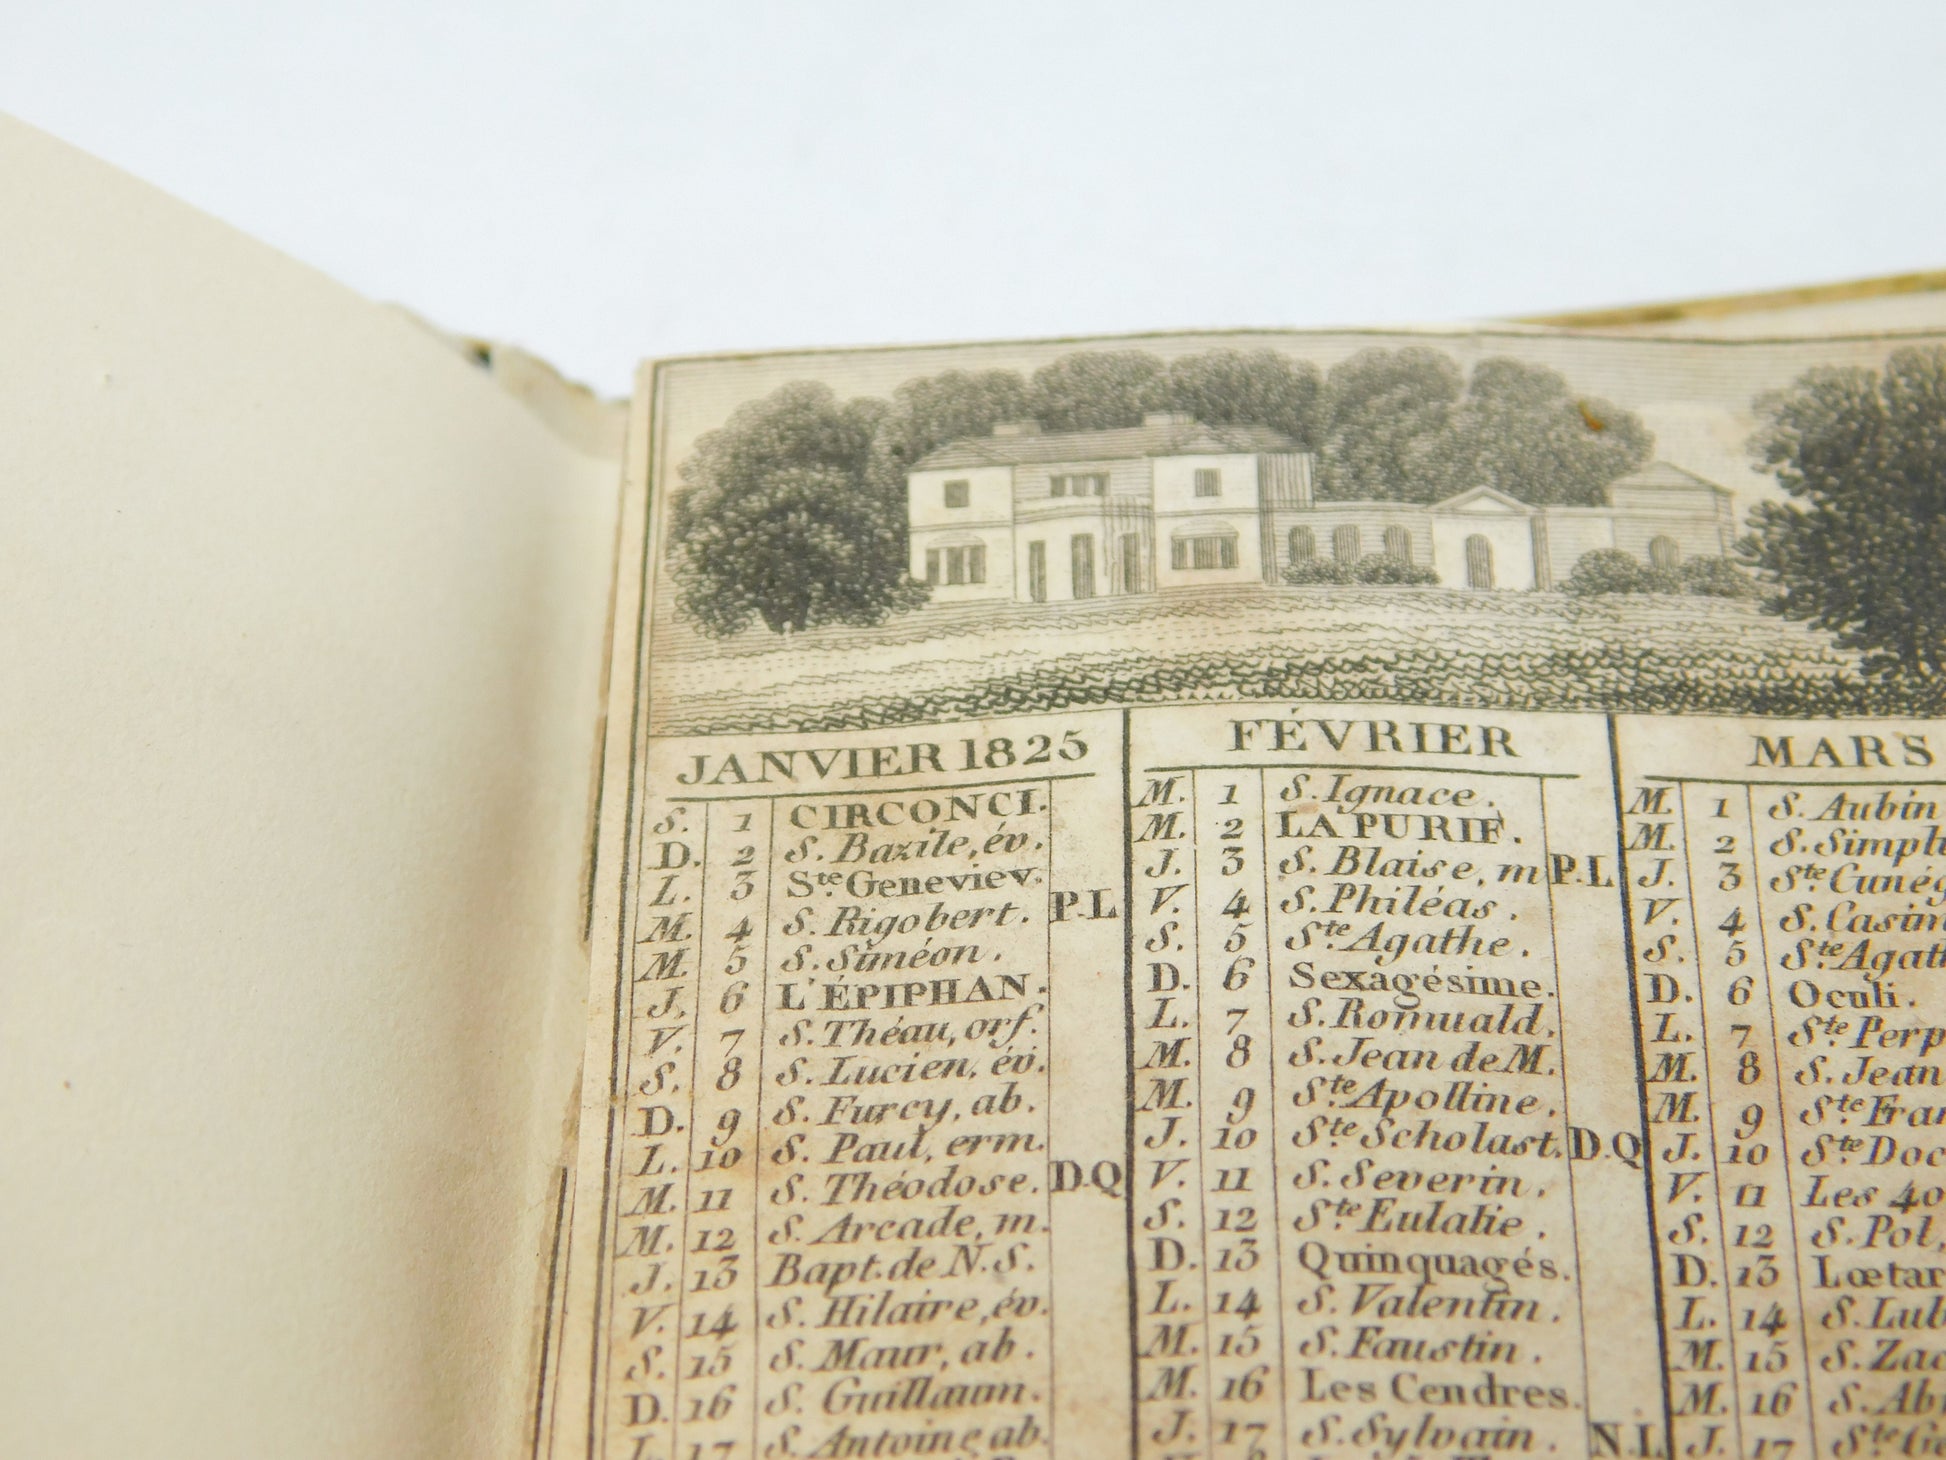 JANVIER 1825
S. 1 CIRCONCI.
D. 2 S. Bazile, év.
L. 3 Ste Geneviev.
M. 4 S. Rigobert. P.L
M. 5 S. Siméon.
J. 6 L'ÉPIPHAN.
V. 7 S. Théau, orf.
S. 8 S. Lucien, év.
D. 9 S. Furcy, ab.
L. 10 S. Paul, erm.
M. 11 S. Théodose. D.Q
M. 12 S. Arcade, m.
J. 13 Bapt. de N.S.
V. 14 S. Hilaire, év.
S. 15 S. Maur, ab.
D. 16 S. Guillaum.
L. 17 S. Antoine ab.
FÉVRIER
M. 1 S. Ignace.
M. 2 LA PURIF.
J. 3 S. Blaise, m P.L
V. 4 S. Philéas.
S. 5 Ste Agathe.
D. 6 Sexagésime.
L. 7 S. Romuald.
M. 8 S. Jean de M.
M. 9 Ste Apolline.
J. 10 Ste Scholast. D.Q
V. 11 S. Severin.
S. 12 Ste Eulalie.
D. 13 Quinquagés.
L. 14 S. Valentin.
M. 15 S. Faustin.
M. 16 Les Cendres.
J. 17 S. Sylvain. N.L
MARS
M. 1 S. Aubin
M. 2 S. Simpli
J. 3 Ste Cunég
V. 4 S. Casim
S. 5 Ste Agath
D. 6 Oculi.
L. 7 Ste Perp
M. 8 S. Jean
M. 9 Ste Fran
J. 10 Ste Doc
V. 11 Les 40
S. 12 S. Pol,
D. 13 Lœtar
L. 14 S. Lub
M. 15 S. Zac
M. 16 S. Ab
J. 17 Ste G